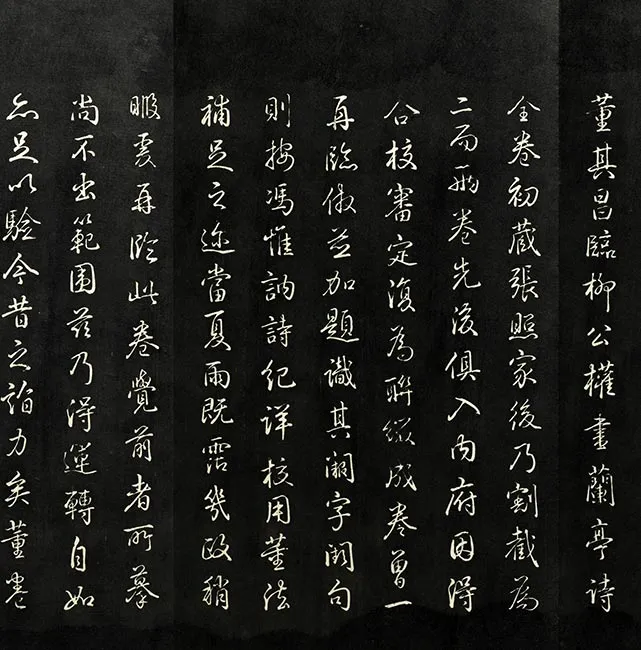 董其昌臨柳公權書蘭亭詩
全卷初藏張照家後乃割截為
二而兩卷先後俱入内府因得
合校審定復為聯綴成卷曾一
再臨倣並加題識其闕字闕句
則按馮惟訥詩紀詳校用董法
補足之迩當夏雨既霑幾政稍
暇爰再臨此卷覺前者所摹
尚不出範圍茲乃得運轉自如
亦足以驗今昔之詣力矣董卷